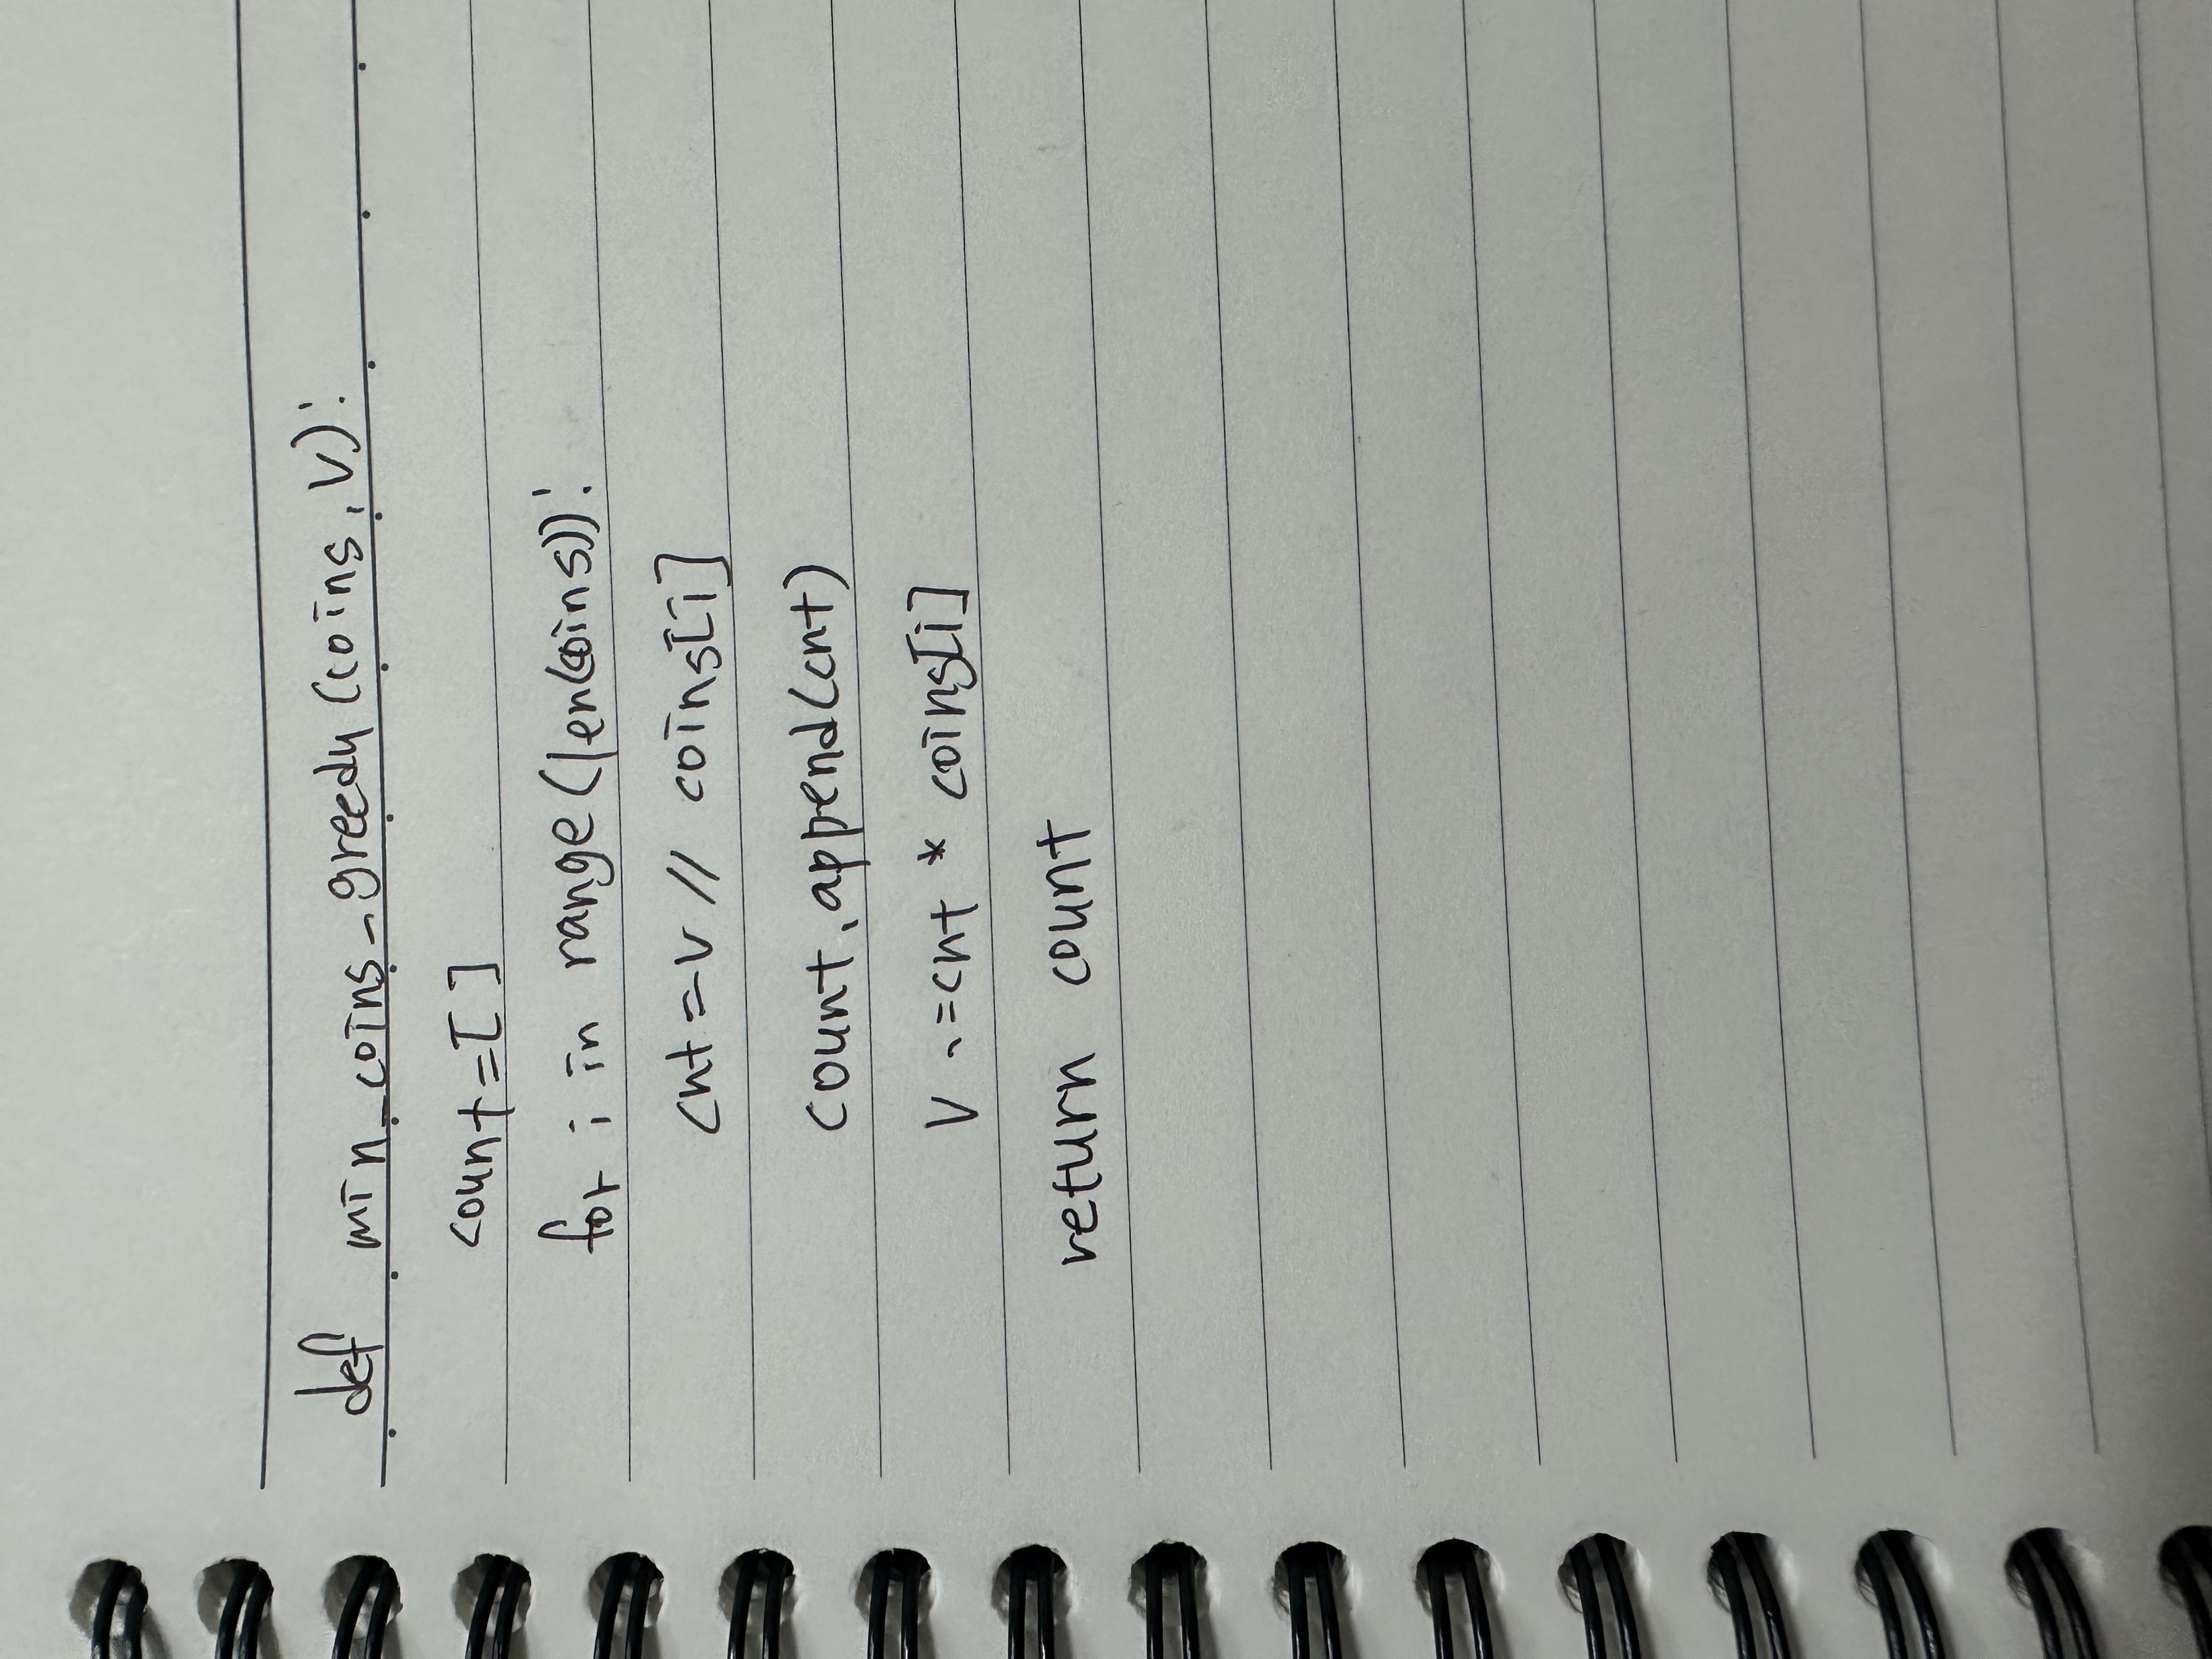 def min_coins_greedy(coins, V):
count=[]
for i in range(len(coins)):
cnt=V // coins[i]
count.append(cnt)
V -=cnt * coins[i]
return count